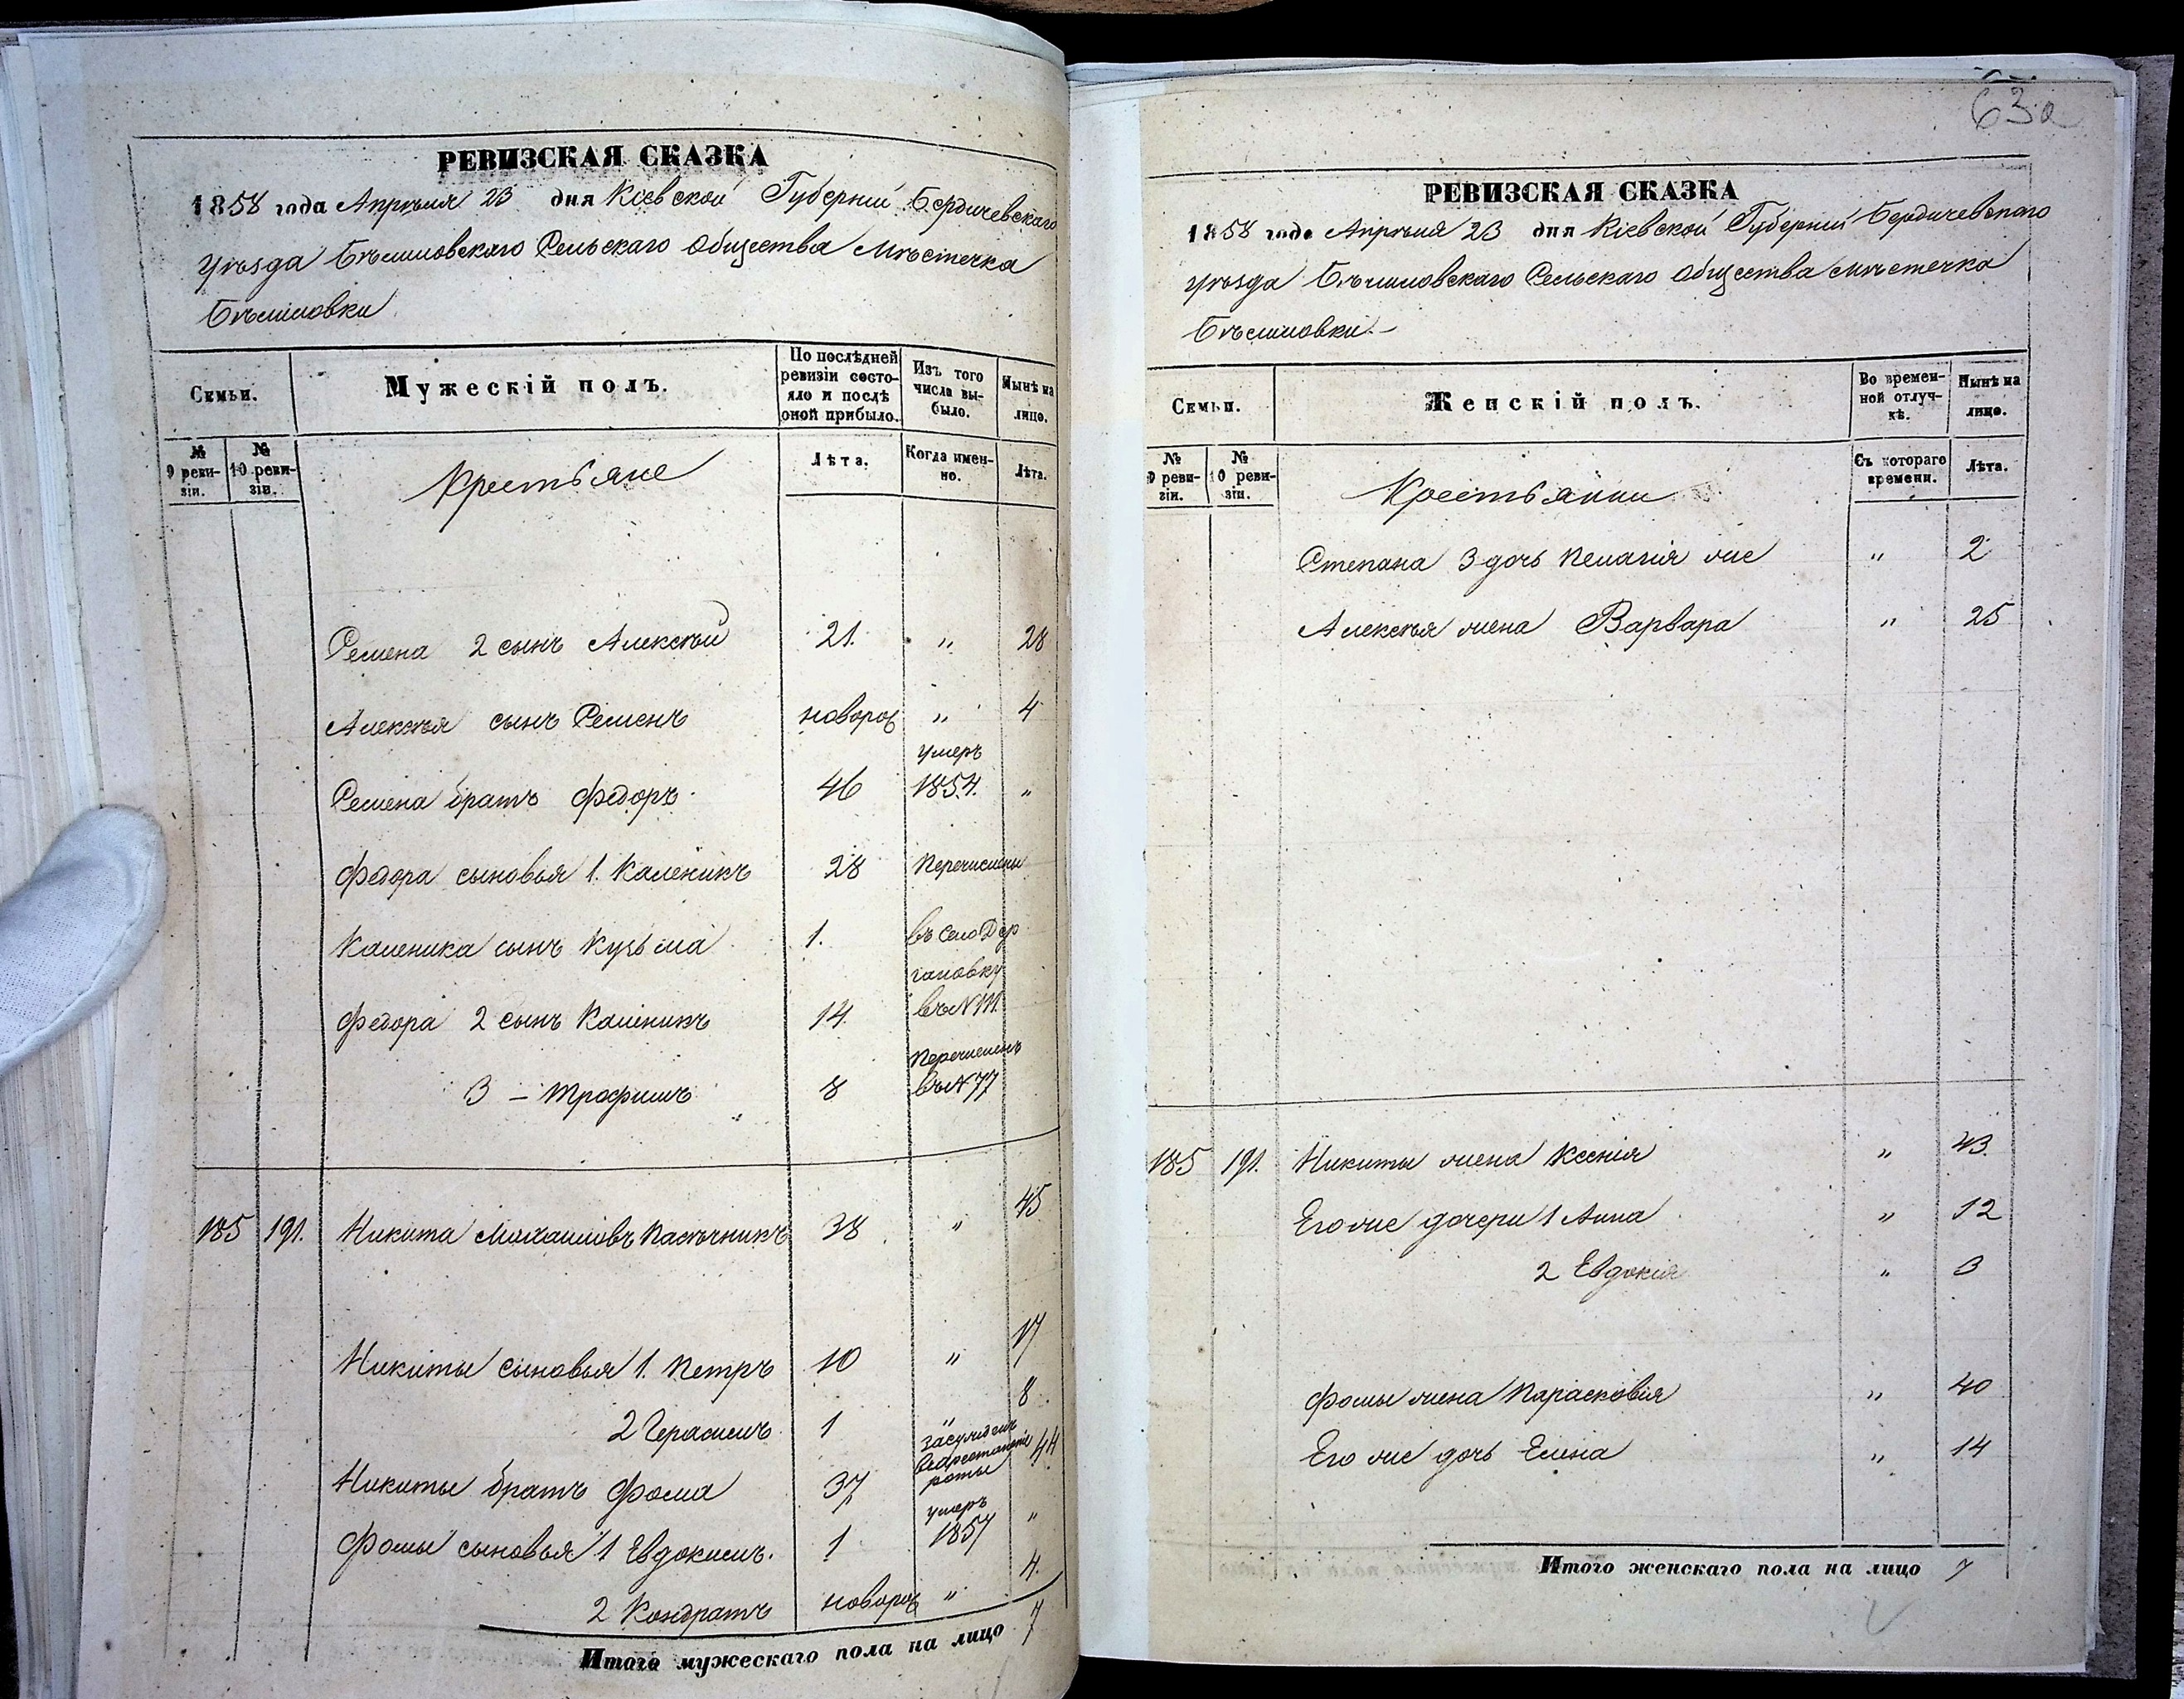 РЕВИЗСКАЯ СКАЗКА
1858 года Апрѣля 23 дня Кіевской Губерніи Бердичевскаго
уѣзда Бѣлиловскаго Сельскаго Общества Мѣстечка
Бѣлиловки
Семьи.
Мужескій полъ.
По послѣдней
ревизіи состо-
яло и послѣ
оной прибыло.
Изъ того
числа вы-
было.
Нынѣ на
лицо.
№
9 реви-
зіи.
№
10 реви-
зіи.
Крестьяне
Лѣта.
Когда имен-
но.
Лѣта.
Семена 2 сынъ Алексѣй 21. " 28
Алексѣя сынъ Семенъ новорож " 4
умеръ
Семена братъ Федоръ 46 1854. "
Федора сыновья 1. Каленикъ 28 Перечислены
Каленика сынъ Кузьма 1. въ село Дер
гановку
Федора 2 сынъ Каленикъ 14. въ N 111.
Перечисленъ
3 – Трофимъ 8 въ N 77
185 191. Никита Михаиловъ Пасѣчникъ 38 " 45
Никиты сыновья 1. Петръ 10 " 17
2 Герасимъ 1 " 8
за суждениемъ
въ арестантскія
роты
Никиты братъ Фома 37 44
умеръ
Фомы сыновья 1 Евдокимъ. 1 1857 "
2 Кондратъ новорож " 4.
Итого мужескаго пола на лицо 7
63а
РЕВИЗСКАЯ СКАЗКА
1858 года Апрѣля 23 дня Кіевской Губерніи Бердичевскаго
уѣзда Бѣлиловскаго Сельскаго Общества Мѣстечка
Бѣлиловки.–
Семьи.
Женскій полъ.
Во времен-
ной отлуч-
кѣ.
Нынѣ на
лицо.
№
9 реви-
зіи.
№
10 реви-
зіи.
Крестьянки
Съ котораго
времени.
Лѣта.
Степана 3 дочь Пелагія же " 2
Алексѣя жена Варвара " 25
185 191. Никиты жена Ксенія " 43.
Его же дочери 1 Анна " 12
2 Евдокія " 3
Фомы жена Парасковія " 40
Его же дочь Елена " 14
Итого женскаго пола на лицо 7